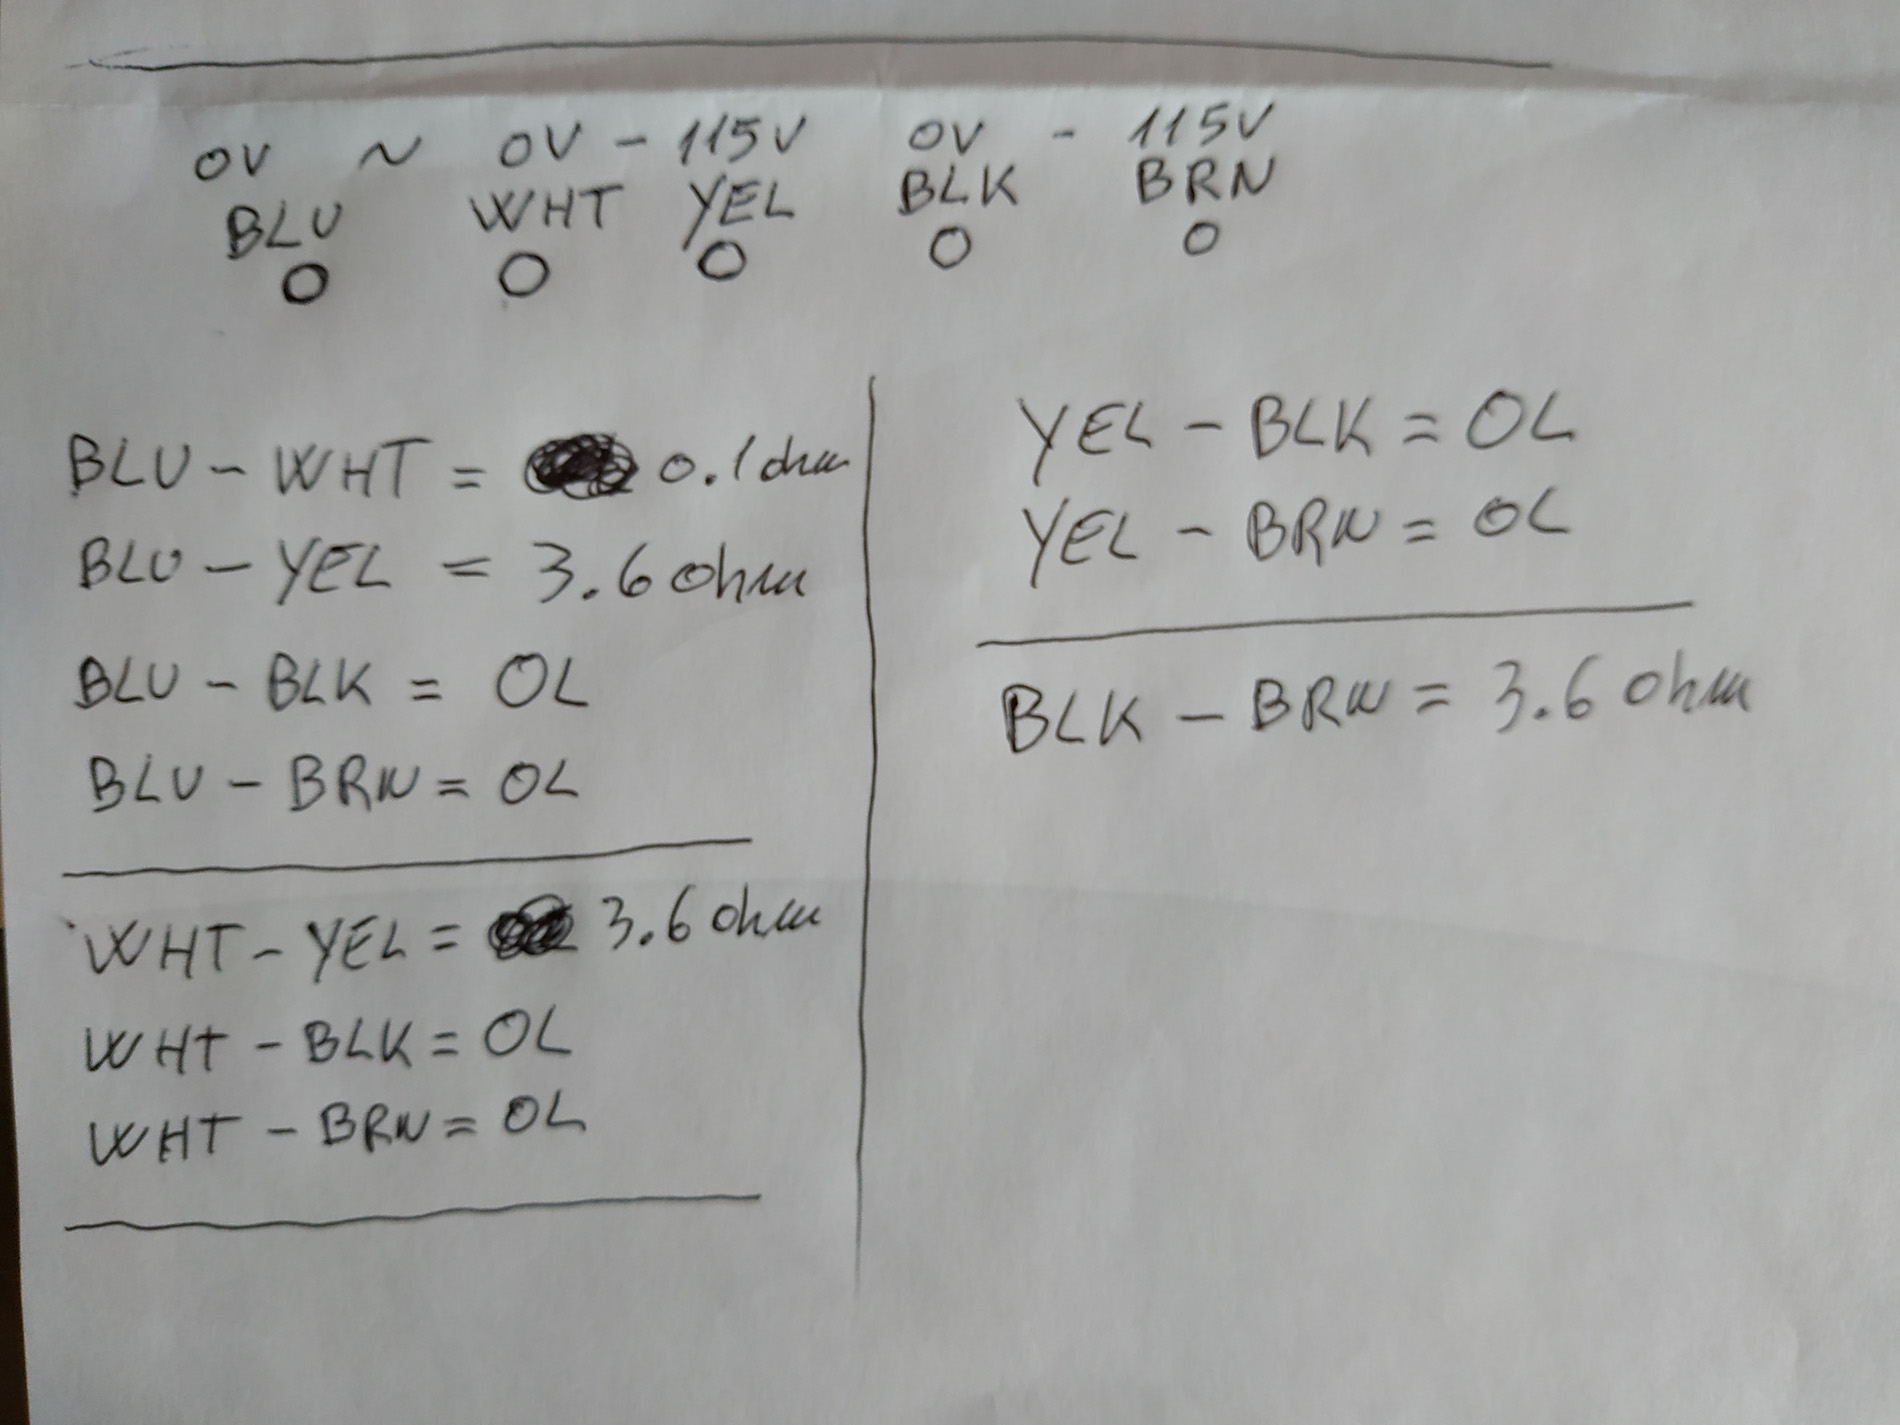 0V ~ 0V - 115V 0V - 115V
BLU WHT YEL BLK BRN
BLU - WHT = 0.1 ohm
BLU - YEL = 3.6 ohm
BLU - BLK = OL
BLU - BRN = OL
WHT - YEL = 3.6 ohm
WHT - BLK = OL
WHT - BRN = OL
YEL - BLK = OL
YEL - BRN = OL
BLK - BRN = 3.6 ohm